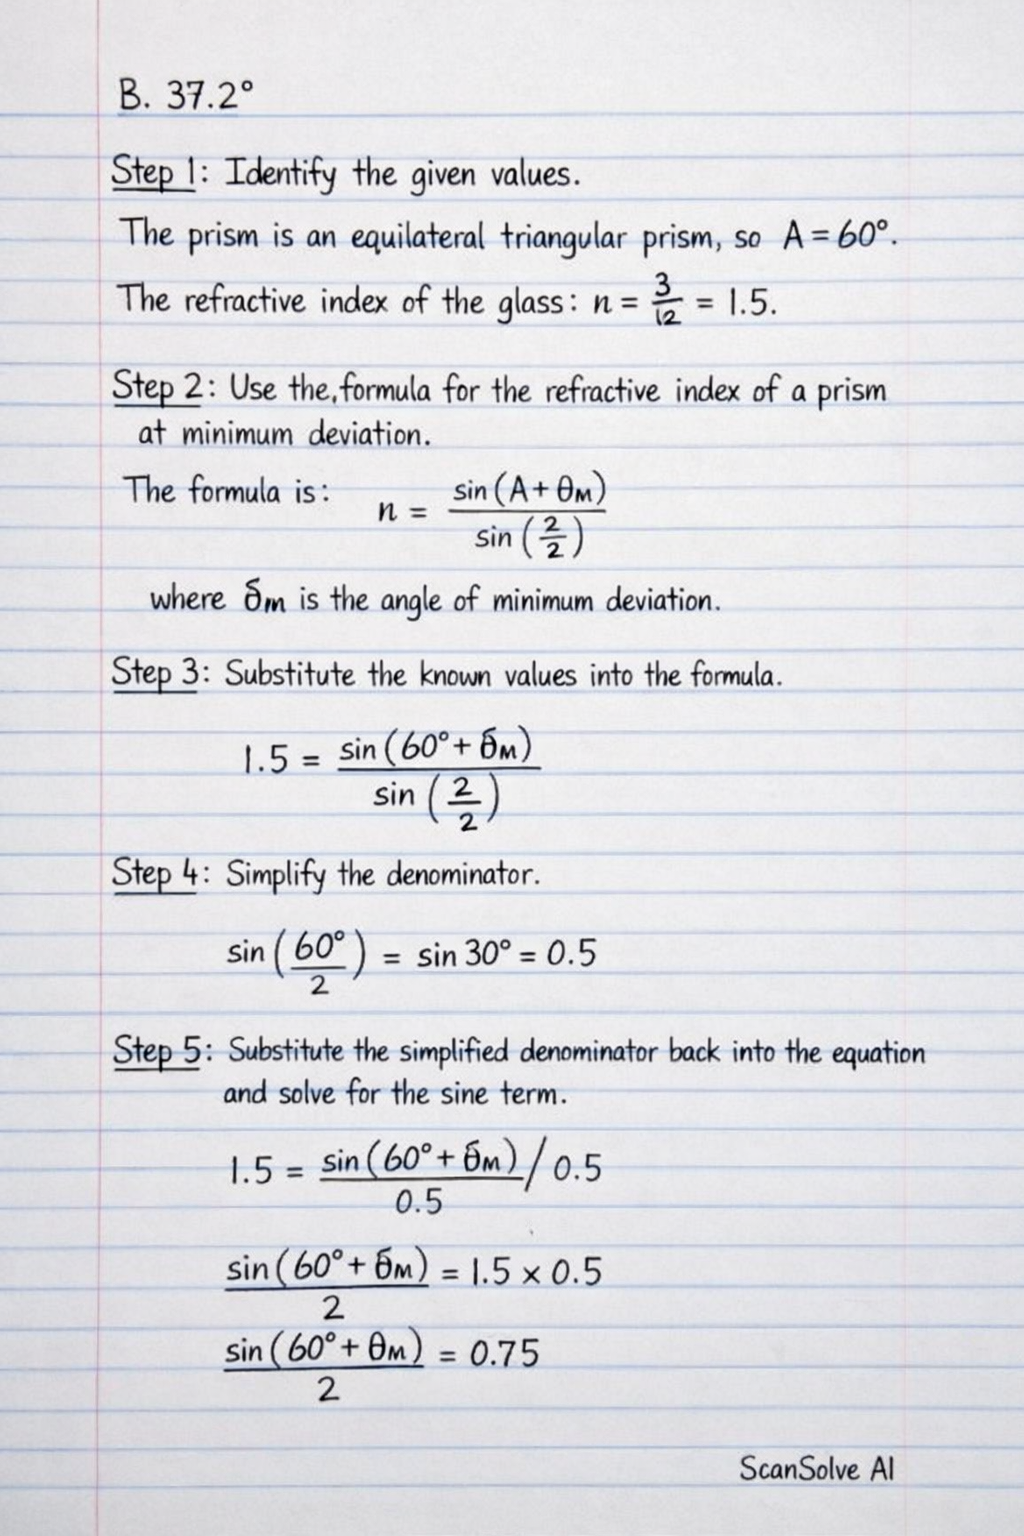 B. 37.2°
Step 1: Identify the given values.
The prism is an equilateral triangular prism, so A = 60°.
The refractive index of the glass: n = 3/12 = 1.5.
Step 2: Use the, formula for the refractive index of a prism
at minimum deviation.
The formula is: n = sin (A + θM) / sin (2/2)
where δm is the angle of minimum deviation.
Step 3: Substitute the known values into the formula.
1.5 = sin (60° + δM) / sin (2/2)
Step 4: Simplify the denominator.
sin (60°/2) = sin 30° = 0.5
Step 5: Substitute the simplified denominator back into the equation
and solve for the sine term.
1.5 = sin (60° + δM) / 0.5 / 0.5
sin (60° + δM) / 2 = 1.5 × 0.5
sin (60° + θM) / 2 = 0.75
ScanSolve AI